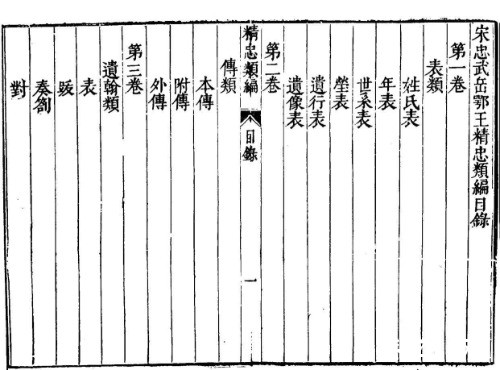 宋忠武岳鄂王精忠類編目錄
第一卷
表類
姓氏表
年表
世系表
塋表
遺行表
遺像表
第二卷
精忠類編 目錄 一
傳類
本傳
附傳
外傳
第三卷
遺翰類
表
跋
奏劄
對